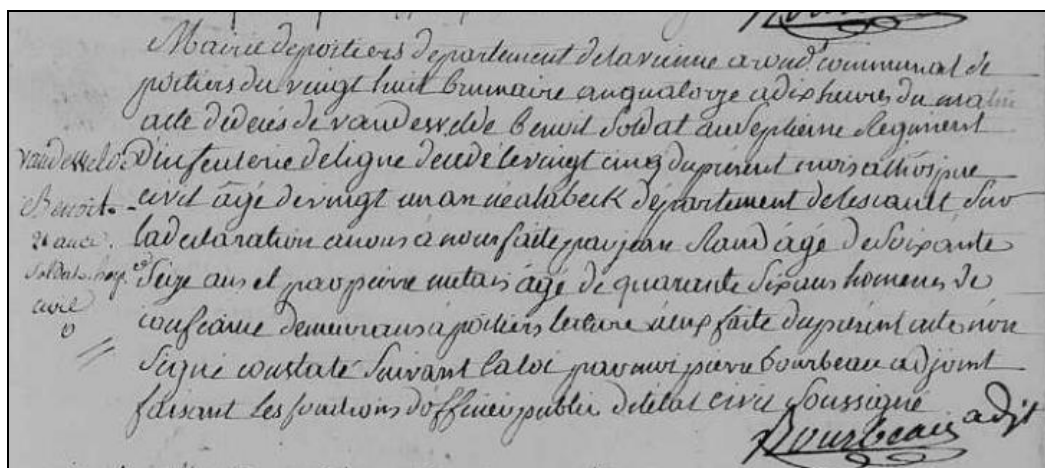 Mairie de poitiers departement de la vienne arond.t communal de
poitiers du vingt huit brumaire an quatorze a dix heures du matin
acte de décés de vandesvelde Benoit Soldat au Septieme Regiment
d'infenterie de ligne decedé le vingt cinq du présent mois a l'hospice
civil âgé de vingt un an né a labeck département de lescault Sur
la declaration a nous faite par jean Rand âgé de Soixante
Seize ans et par pierre metais âgé de quarante Six ans hommes de
confiance demeurans a poitiers lecture a eux faite du présent acte non
Signé constaté Suivant la loi par moi pierre bourbeau adjoint
faisant les fonctions d'officier public de l'état civil Soussigné
Bourbeau adjt
vandesvelde
Benoit
21 ans
Soldat hosp.
civil